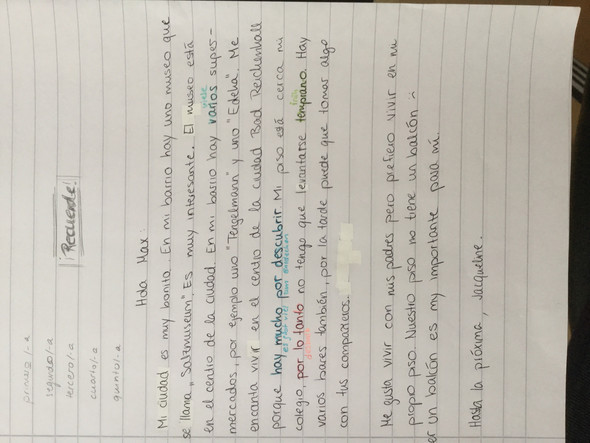 primero/-a
segundo/-a
tercero/-a
cuarto/-a
quinto/-a
¡Recuerde!
Hola Max:
Mi ciudad es muy bonita. En mi barrio hay uno museo que
se llama „Salzmuseum". Es muy interesante. El museo está
en el centro de la ciudad. En mi barrio hay varios super-
viele
mercados, por ejemplo uno "Tengelmann" y uno "Edeka". Me
encanta vivir en el centro de la ciudad Bad Reichenhall
porque hay mucho por descubrir. Mi piso está cerca mi
es gibt viel zum entdecken
früh
colegio, por lo tanto no tengo que levantarse temprano. Hay
deshalb
varios bares también, por la tarde puede que tomar algo
con tus compañeros.
Me gusta vivir con mis padres pero prefiero vivir en mi
propio piso. Nuestro piso no tiene un balcón :
er un balcón es my importante para mí.
Hasta la próxima, Jacqueline.